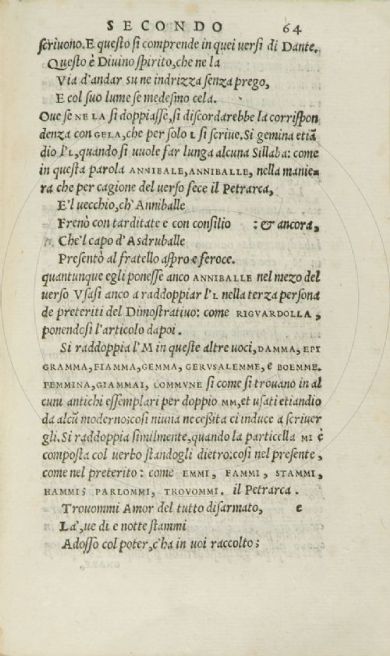 SECONDO 64
ſcriuono. E queſto ſi comprende in quei uerſi di Dante.
Queſto è Diuino ſpirito, che ne la
Via d'andar ſu ne indrizza ſenza prego,
E col ſuo lume ſe medeſmo cela.
Oue ſe NE LA ſi doppiaſſe, ſi diſcordarebbe la corriſpon
denza con GELA, che per ſolo L ſi ſcriue. Si gemina etiā
dio l'L, quando ſi uuole far lunga alcuna Sillaba: come
in queſta parola ANNIBALE, ANNIBALLE, nella manie
ra che per cagione del uerſo fece il Petrarca,
E'l uecchio, ch'Anniballe
Frenò con tarditate e con conſilio : & ancora,
Che'l capo d'Asdruballe
Preſentò al fratello aſpro e feroce.
quantunque egli poneſſe anco ANNIBALLE nel mezo del
uerſo Vſaſi anco a raddoppiar l'L nella terza perſona
de preteriti del Dimoſtratiuo: come RIGVARDOLLA,
ponendoſi l'articolo dapoi.
Si raddoppia l'M in queſte altre uoci, DAMMA, EPI
GRAMMA, FIAMMA, GEMMA, GERVSALEMME, è BOEMME.
FEMMINA, GIAMMAI, COMMVNE ſi come ſi trouano in al
cuni antichi eſſemplari per doppio MM, et uſati etiandio
da alcū moderno: coſi niuna neceſſita ci induce a ſcriuer
gli. Si raddoppia ſimilmente, quando la particella MI è
compoſta col uerbo ſtandogli dietro: coſi nel preſente,
come nel preterito: come EMMI, FAMMI, STAMMI,
HAMMI; PARLOMMI, TROVOMMI. il Petrarca.
Trouommi Amor del tutto diſarmato, e
Là, ue di e notte ſtammi
Adoſſo col poter, c'ha in uoi raccolto;